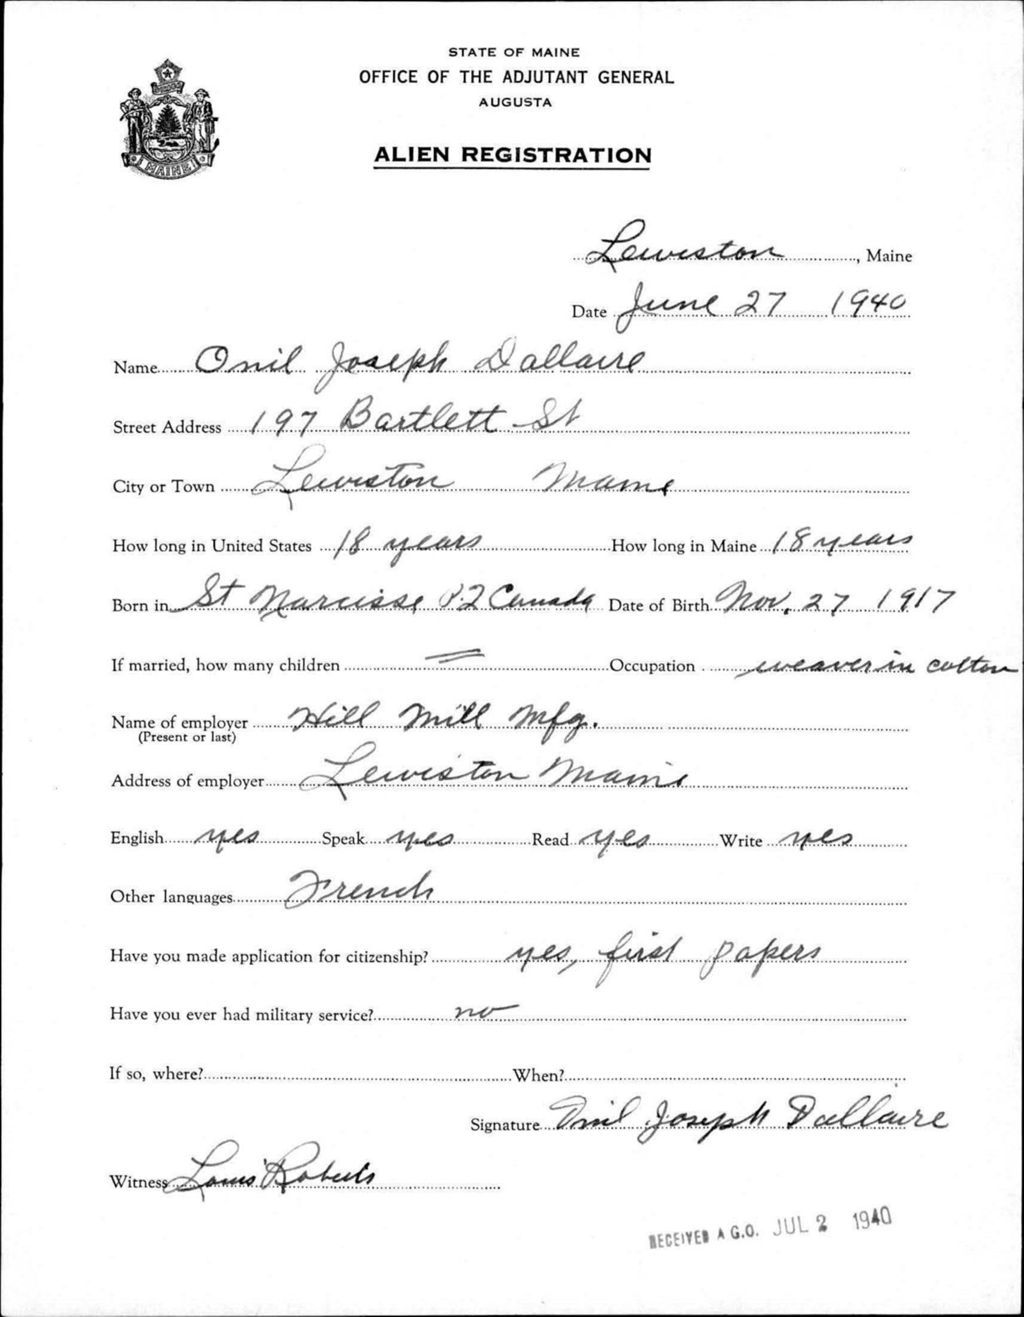 STATE OF MAINE
OFFICE OF THE ADJUTANT GENERAL
AUGUSTA
ALIEN REGISTRATION
MAINE
Lewiston, Maine
Date June 27 1940
Name Onil Joseph Dallaire
Street Address 197 Bartlett St
City or Town Lewiston Maine
How long in United States 18 years How long in Maine 18 years
Born in St Narcisse P.Q Canada Date of Birth Nov. 27 1917
If married, how many children = Occupation weaver in cotton
Name of employer Hill Mill Mfg.
(Present or last)
Address of employer Lewiston Maine
English yes Speak yes Read yes Write yes
Other languages French
Have you made application for citizenship? yes, first papers
Have you ever had military service? no
If so, where? When?
Signature Onil Joseph Dallaire
Witness Louis Roberts
RECEIVED A.G.O. JUL 2 1940